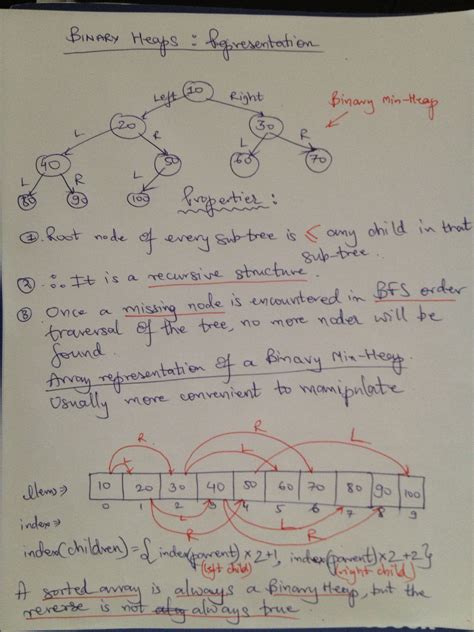 BINARY HEAPS : Representation
10
Left
Right
Binary Min-Heap
20
30
L
R
L
R
40
50
60
70
L
R
L
80
90
100
Properties :
1. Root node of every sub-tree is ≤ any child in that
sub-tree.
2. ∴ It is a recursive structure.
3 Once a missing node is encountered in BFS order
traversal of the tree, no more nodes will be
found.
Array representation of a Binary Min-Heap.
Usually more convenient to manipulate
R
R
L
L
Elems⇒ 10 20 30 40 50 60 70 80 90 100
index⇒ 0 1 2 3 4 5 6 7 8 9
L
R
L
R
index(children) = { index(parent)×2+1, index(parent)×2+2}
(left child) (right child)
A sorted array is always a Binary Heap, but the
reverse is not always true.